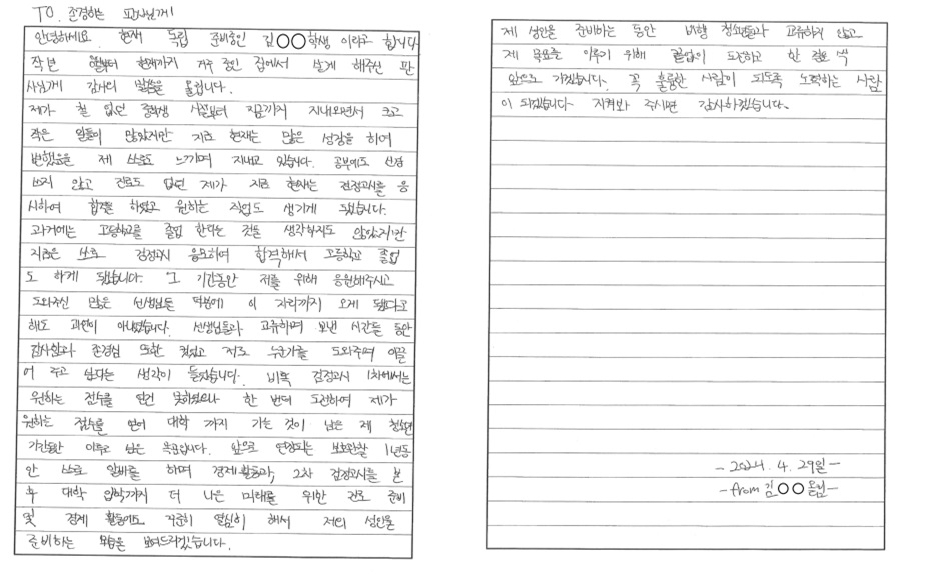 TO. 존경하는 판사님께!
안녕하세요. 현재 독립 준비중인 김○○학생 이라고 합니다
작년 월부터 현재까지 거주 중인 집에서 살게 해주신 판
사님께 감사의 말씀을 올립니다.
제가 철 없던 중학생 시절부터 지금까지 지내오면서 크고
작은 일들이 많았지만 지금 현재는 많은 성장을 하여
변했음을 제 스스로도 느끼며 지내고 있습니다. 공부에도 신경
쓰지 않고 진로도 없던 제가 지금 현재는 검정고시를 응
시하여 합격을 하였고 원하는 직업도 생기게 됐습니다.
과거에는 고등학교를 졸업 한다는 것을 생각하지도 않았지만
지금은 스스로 검정고시 응모하여 합격해서 고등학교 졸업
도 하게 됐습니다. 그 기간동안 저를 위해 응원해주시고
도와주신 많은 선생님들 덕분에 이 자리까지 오게 됐다고
해도 과언이 아니었습니다. 선생님들과 교류하며 보낸 시간들 동안
감사함과 존경심 또한 컸었고 저도 누군가를 도와주며 이끌
어 주고 싶다는 생각이 들었습니다. 비록 검정고시 1차에서는
원하는 점수를 얻진 못하였으나 한 번 더 도전하여 제가
원하는 점수를 얻어 대학 까지 가는 것이 남은 제 청소년
기간동안 이루고 싶은 목표입니다. 앞으로 연장되는 보호관찰 1년동
안 스스로 알바를 하며 경제활동과, 2차 검정고시를 본
후 대학 입학까지 더 나은 미래를 위한 진로 준비
및 경제 활동에도 꾸준히 열심히 해서 저의 성인을
준비하는 모습을 보여드리겠습니다.
제 성인을 준비하는 동안 비행 청소년들과 교류하지 않고
제 목표를 이루기 위해 끝없이 도전하고 한 걸음 씩
앞으로 가겠습니다. 꼭 훌륭한 사람이 되도록 노력하는 사람
이 되겠습니다. 지켜봐 주시면 감사하겠습니다.
-2024. 4. 29일-
-from 김○○올림-